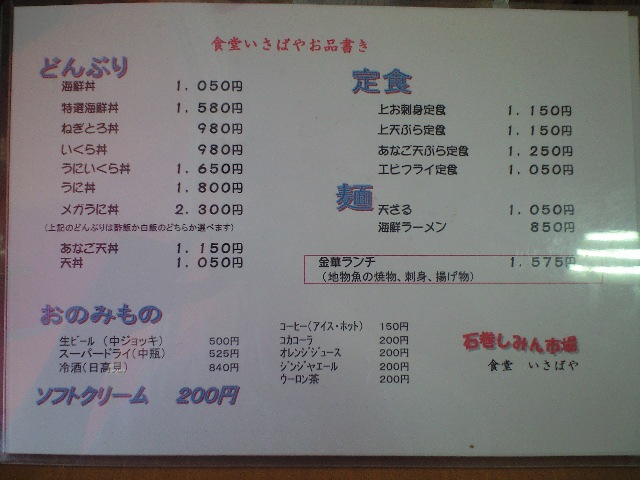 食堂いさばやお品書き
どんぶり
海鮮丼 1,050円
特選海鮮丼 1,580円
ねぎとろ丼 980円
いくら丼 980円
うにいくら丼 1,650円
うに丼 1,800円
メガうに丼 2,300円
(上記のどんぶりは酢飯か白飯のどちらか選べます)
あなご天丼 1,150円
天丼 1,050円
定食
上お刺身定食 1,150円
上天ぷら定食 1,150円
あなご天ぷら定食 1,250円
エビフライ定食 1,050円
麺
天ざる 1,050円
海鮮ラーメン 850円
金華ランチ 1,575円
(地物魚の焼物、刺身、揚げ物)
おのみもの
生ビール (中ジョッキ) 500円
スーパードライ(中瓶) 525円
冷酒(日高見) 840円
ソフトクリーム 200円
コーヒー(アイス・ホット) 150円
コカコーラ 200円
オレンジジュース 200円
ジンジャエール 200円
ウーロン茶 200円
石巻しみん市場
食堂 いさばや